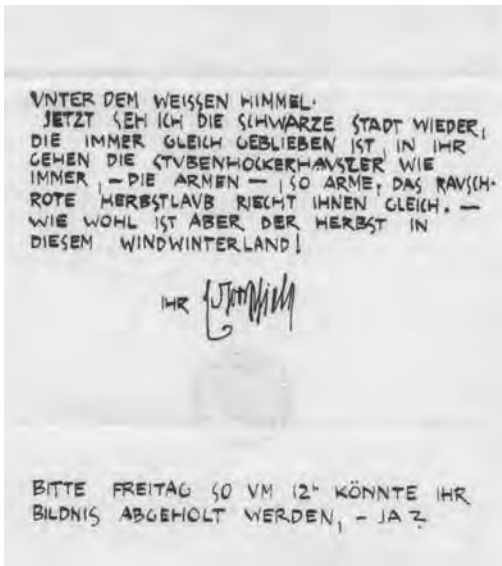 VNTER DEM WEISSEN HIMMEL.
JETZT SEH ICH DIE SCHWARZE STADT WIEDER,
DIE IMMER GLEICH GEBLIEBEN IST, IN IHR
GEHEN DIE STVBENHOCKERHAVSLER WIE
IMMER, – DIE ARMEN –, SO ARME, DAS RAVSCH-
ROTE HERBSTLAVB RIECHT IHNEN GLEICH. –
WIE WOHL IST ABER DER HERBST IN
DIESEM WINDWINTERLAND!
IHR
BITTE FREITAG SO VM 12h KÖNNTE IHR
BILDNIS ABGEHOLT WERDEN, – JA?